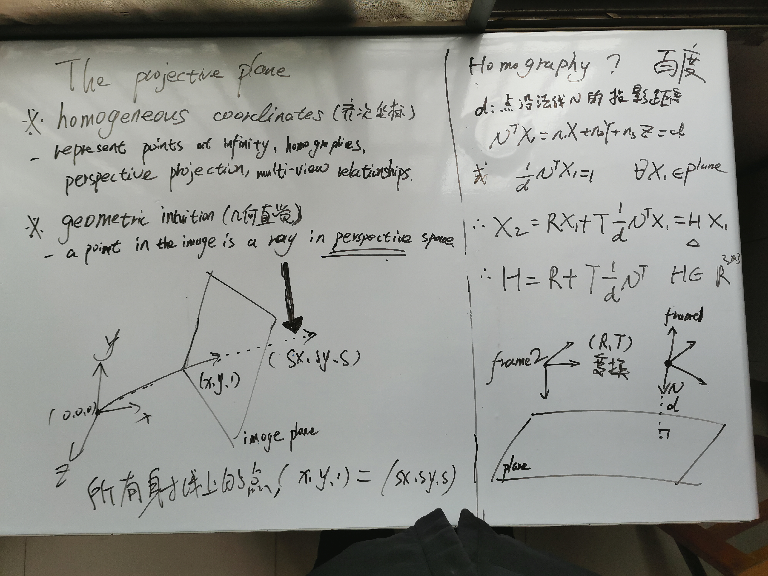 The projective plane
※ homogeneous coordinates (齐次坐标)
- represent points at infinity, homographies,
perspective projection, multi-view relationships.
※ geometric intuition (几何直觉)
- a point in the image is a ray in perspective space
y
(0,0,0)
x
z
(x,y,1)
(sx,sy,s)
image plane
所有射线上的点, (x,y,1) = (sx,sy,s)
Homography ? 百度
d: 点沿法线N的投影距离
NᵀX₁=n₁X+n₂Y+n₃Z=d
1/d NᵀX₁=1 ∀X₁∈plane
∴ X₂=RX₁+T 1/d NᵀX₁=H X₁
∴ H=R+T 1/d Nᵀ H∈ R³ˣ³
frame2
(R,T)
变换
frame1
N
d
plane